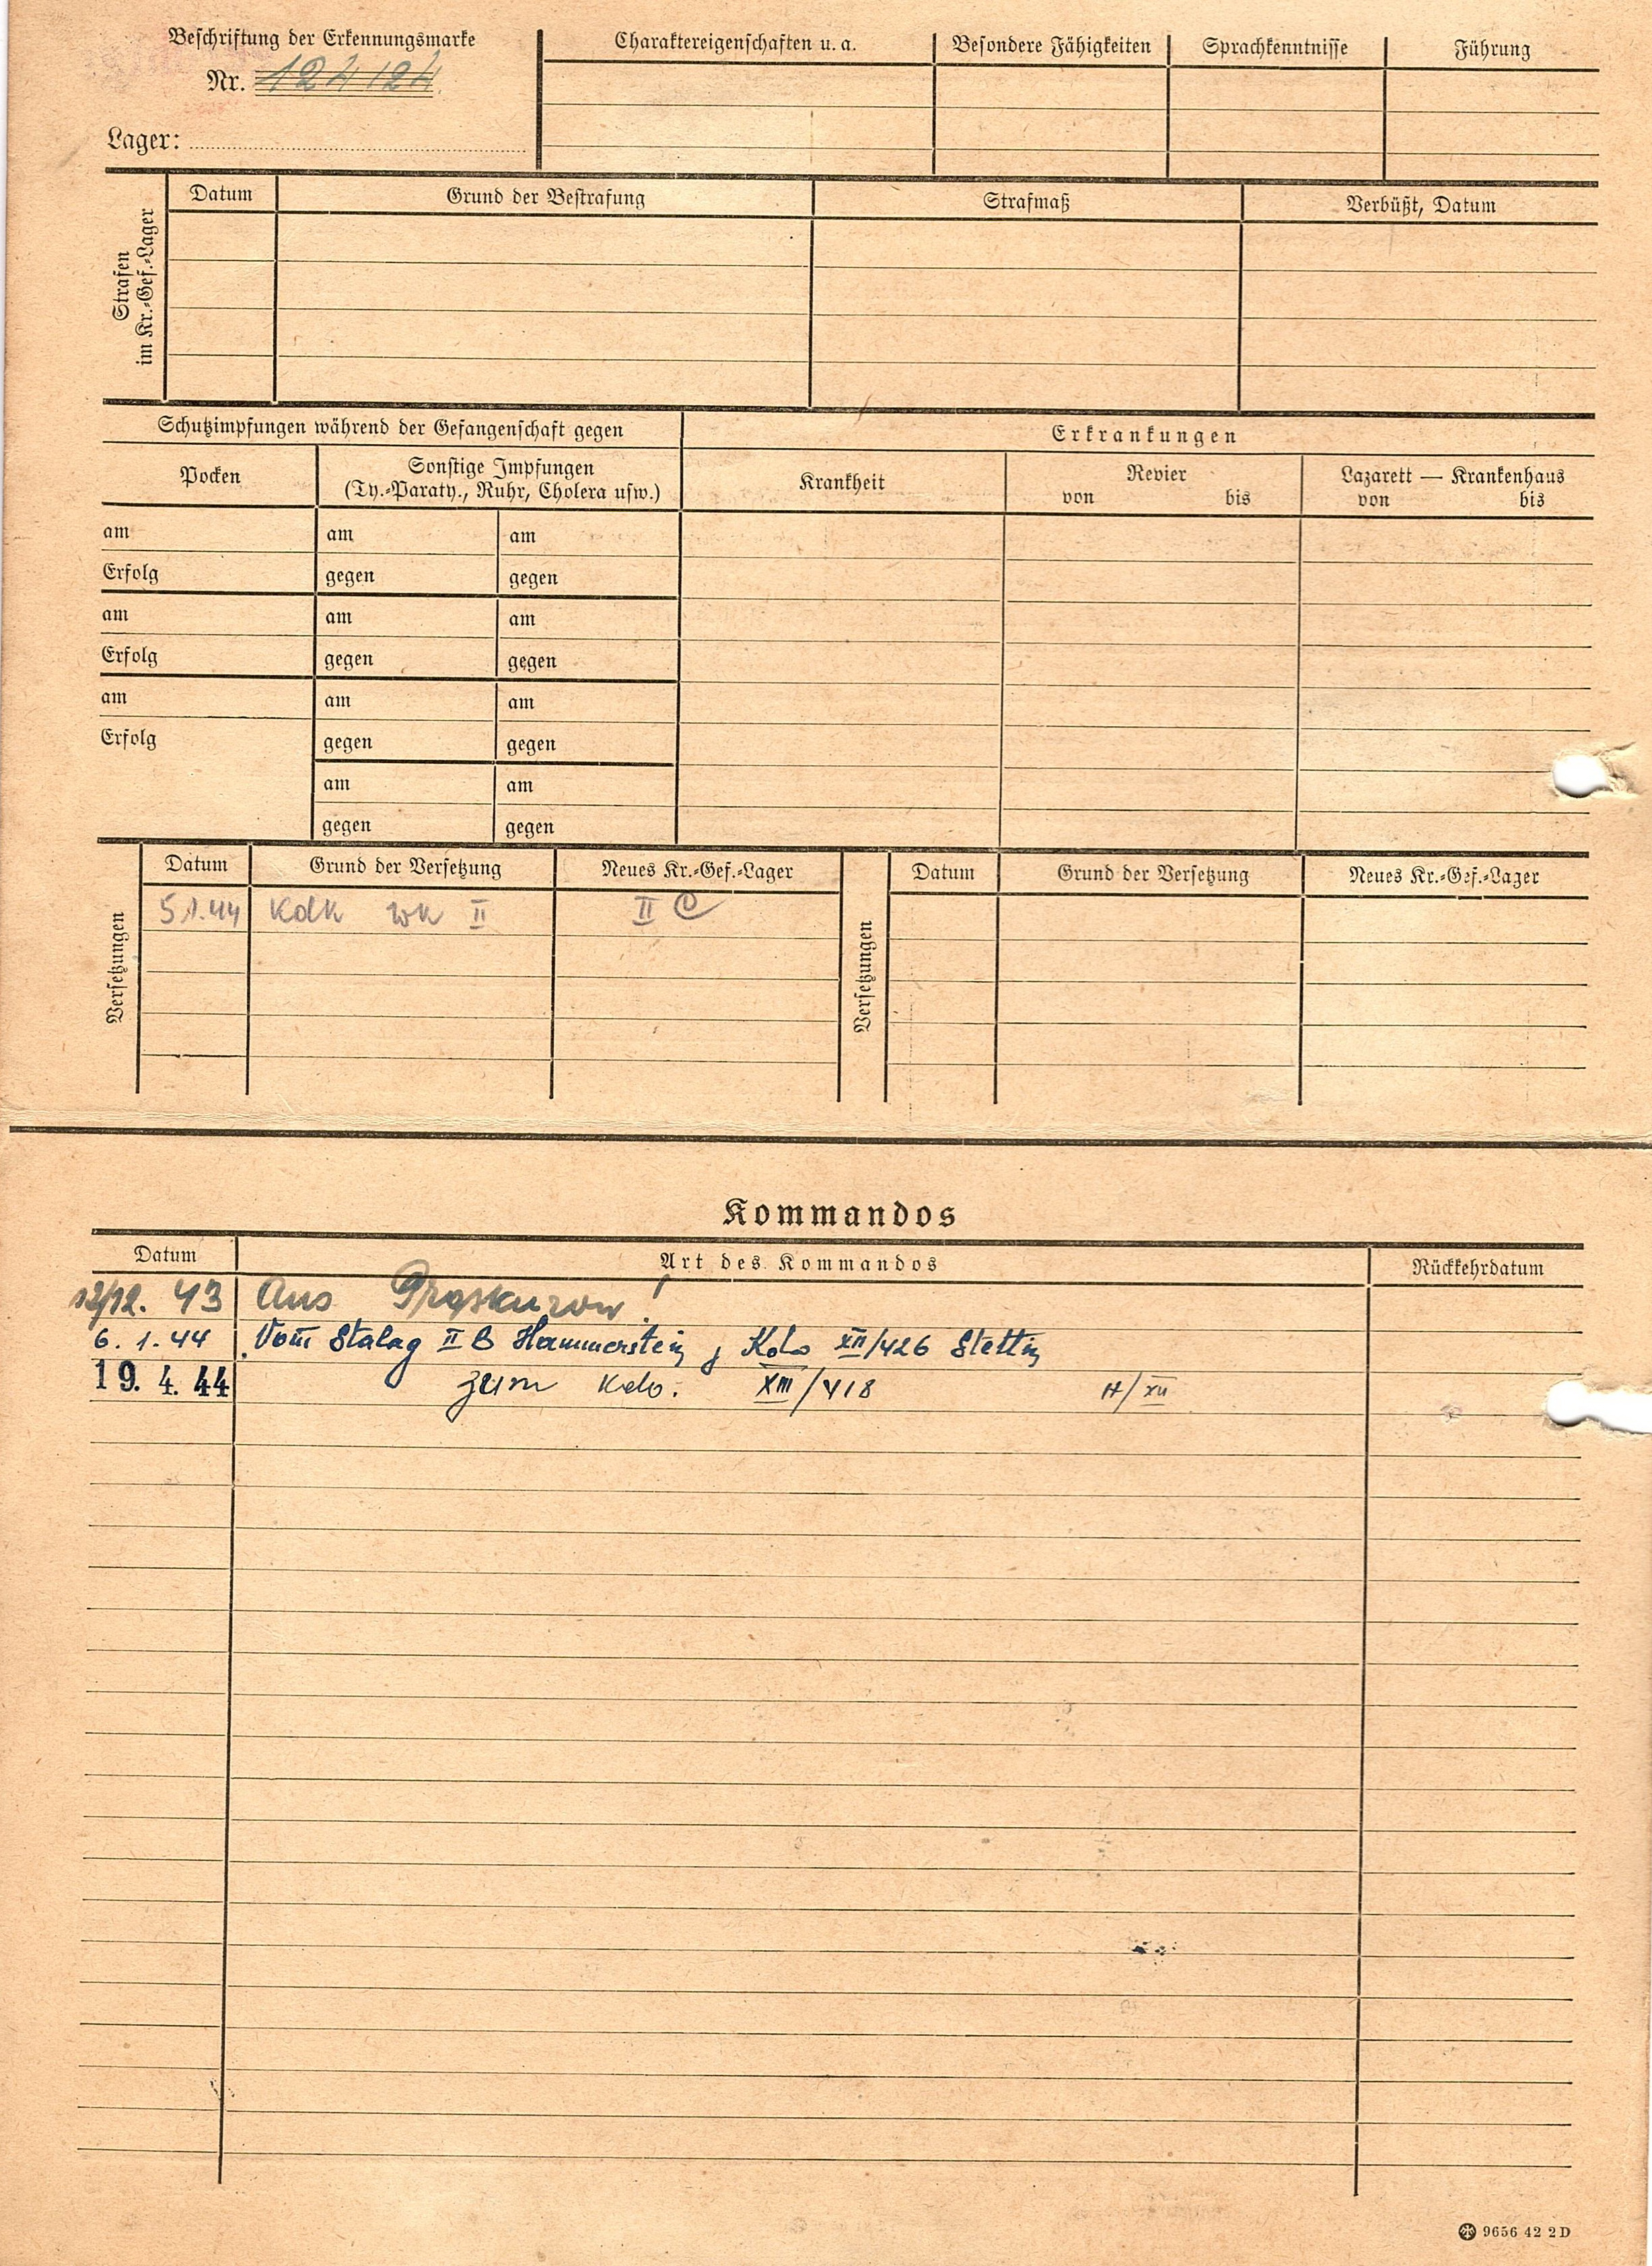 Beschriftung der Erkennungsmarke
Nr. 124124
Lager:
Charaktereigenschaften u. a.
Besondere Fähigkeiten
Sprachkenntnisse
Führung
Strafen
im Kr.-Gef.-Lager
Datum
Grund der Bestrafung
Strafmaß
Verbüßt, Datum
Schutzimpfungen während der Gefangenschaft gegen
Erkrankungen
Pocken
Sonstige Impfungen
(Ty.-Paraty., Ruhr, Cholera usw.)
Krankheit
Revier
von bis
Lazarett — Krankenhaus
von bis
am am am
Erfolg gegen gegen
am am am
Erfolg gegen gegen
am am am
Erfolg gegen gegen
am am
gegen gegen
Versetzungen
Datum Grund der Versetzung Neues Kr.-Gef.-Lager
5.1.44 Kdk WK II II C
Versetzungen
Datum Grund der Versetzung Neues Kr.-Gef.-Lager
Kommandos
Datum Art des Kommandos Rückkehrdatum
12/12. 43 Aus Proskurow!
6. 1. 44 Vom Stalag II B Hammerstein, Kdo XII/426 Stettin
19. 4. 44 zum Kdo. XIII/418 H/XII
9656 42 2D